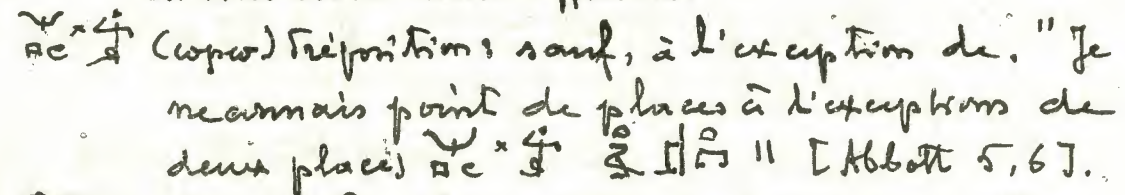 (wpw) Préposition: sauf, à l'exception de. "Je
ne connais point de places à l'exceptions de
deux places " [Abbott 5,6].